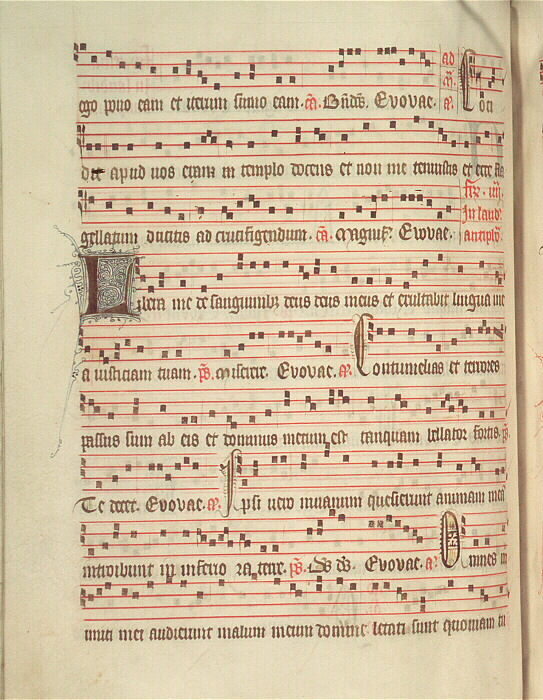 ego pono eam et iterum sumo eam. Euouae. Coti
die apud uos eram in templo docens et non me tenuistis et ecce fla
gellatum ducitis ad crucifigendum. Magnif. Euouae.
In laud
Libera me de sanguinibus deus deus meus et exultabit lingua me
a iusticiam tuam. ps. Miserere. Euouae. a. Contumelias et terrores
passus sum ab eis et dominus mecum est tanquam bellator fortis. ps.
Te decet. Euouae. a. Ipsi uero in uanum quesierunt animam mea
introibunt in inferiora terre. ps. Ds ds. Euouae. a. Omnes in
imici mei audierunt malum meum domine letati sunt quoniam tu